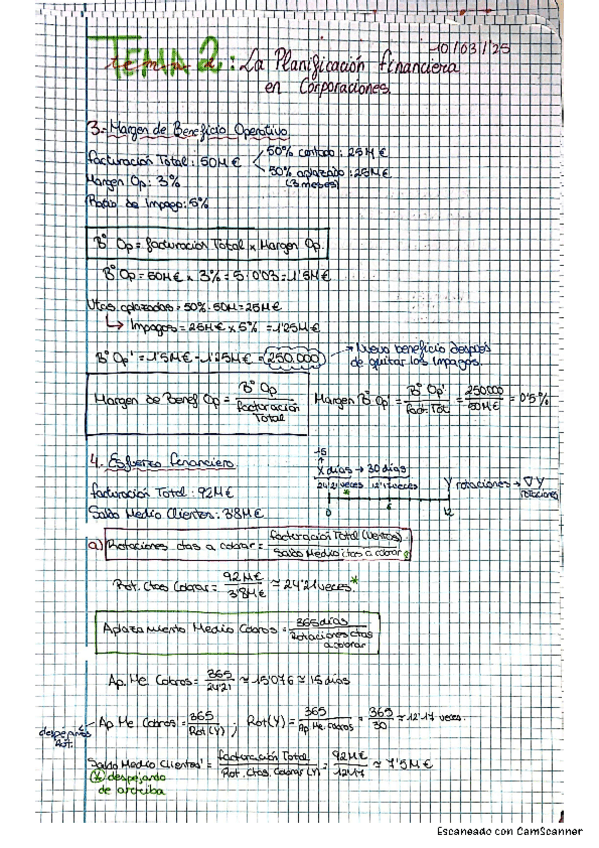 10/03/25
TEMA 2: La Planificación financiera
en Corporaciones.
3.- Margen de Beneficio Operativo
Facturación Total: 50M€
50% contado: 25M€
50% aplazado: 25M€
(3 meses)
Margen Op: 3%
Ratio de Impago: 5%
Bº Op = facturación Total x Margen Op.
Bº Op = 50M€ x 3% = 5·0'03 = 1'5M€
Vtas. aplazadas = 50%·50M = 25M€
↳ Impagos = 25M€ x 5% = 1'25M€
Bº Op' = 1'5M€ - 1'25M€ = 250.000
→ Nuevo beneficio después
de quitar los impagos.
Margen de Benef Op = Bº Op / facturación Total
Margen Bº Op' = Bº Op' / Fact. Tot = 250000 / 50M€ = 0'5%
4. Esfuerzo financiero
-15
X días → 30 días
24'21 veces 12'17 veces
Y rotaciones → ∇ Y
rotaciones
0 6 12
facturación Total: 92M€
Saldo Medio Clientes: 3'8M€
a) Rotaciones ctas a cobrar = facturación Total (Ventas) / Saldo Medio ctas a cobrar
Rot. Ctas Cobrar = 92M€ / 3'8M€ ≈ 24'21 veces.*
Aplazamiento Medio Cobros = 365 días / Rotaciones ctas a cobrar
Ap. Me. Cobros = 365 / 24'21 ≈ 15'076 ≈ 15 días
despejamos Rot.
Ap. Me. Cobros' = 365 / Rot(Y) ; Rot(Y) = 365 / Ap. Me. Cobros = 365 / 30 ≈ 12'17 veces.
Saldo Medio Clientes' = facturación Total / Rot. Ctas. Cobrar (Y) = 92M€ / 12'17 ≈ 7'5M€
despejando
de arriba
Escaneado con CamScanner